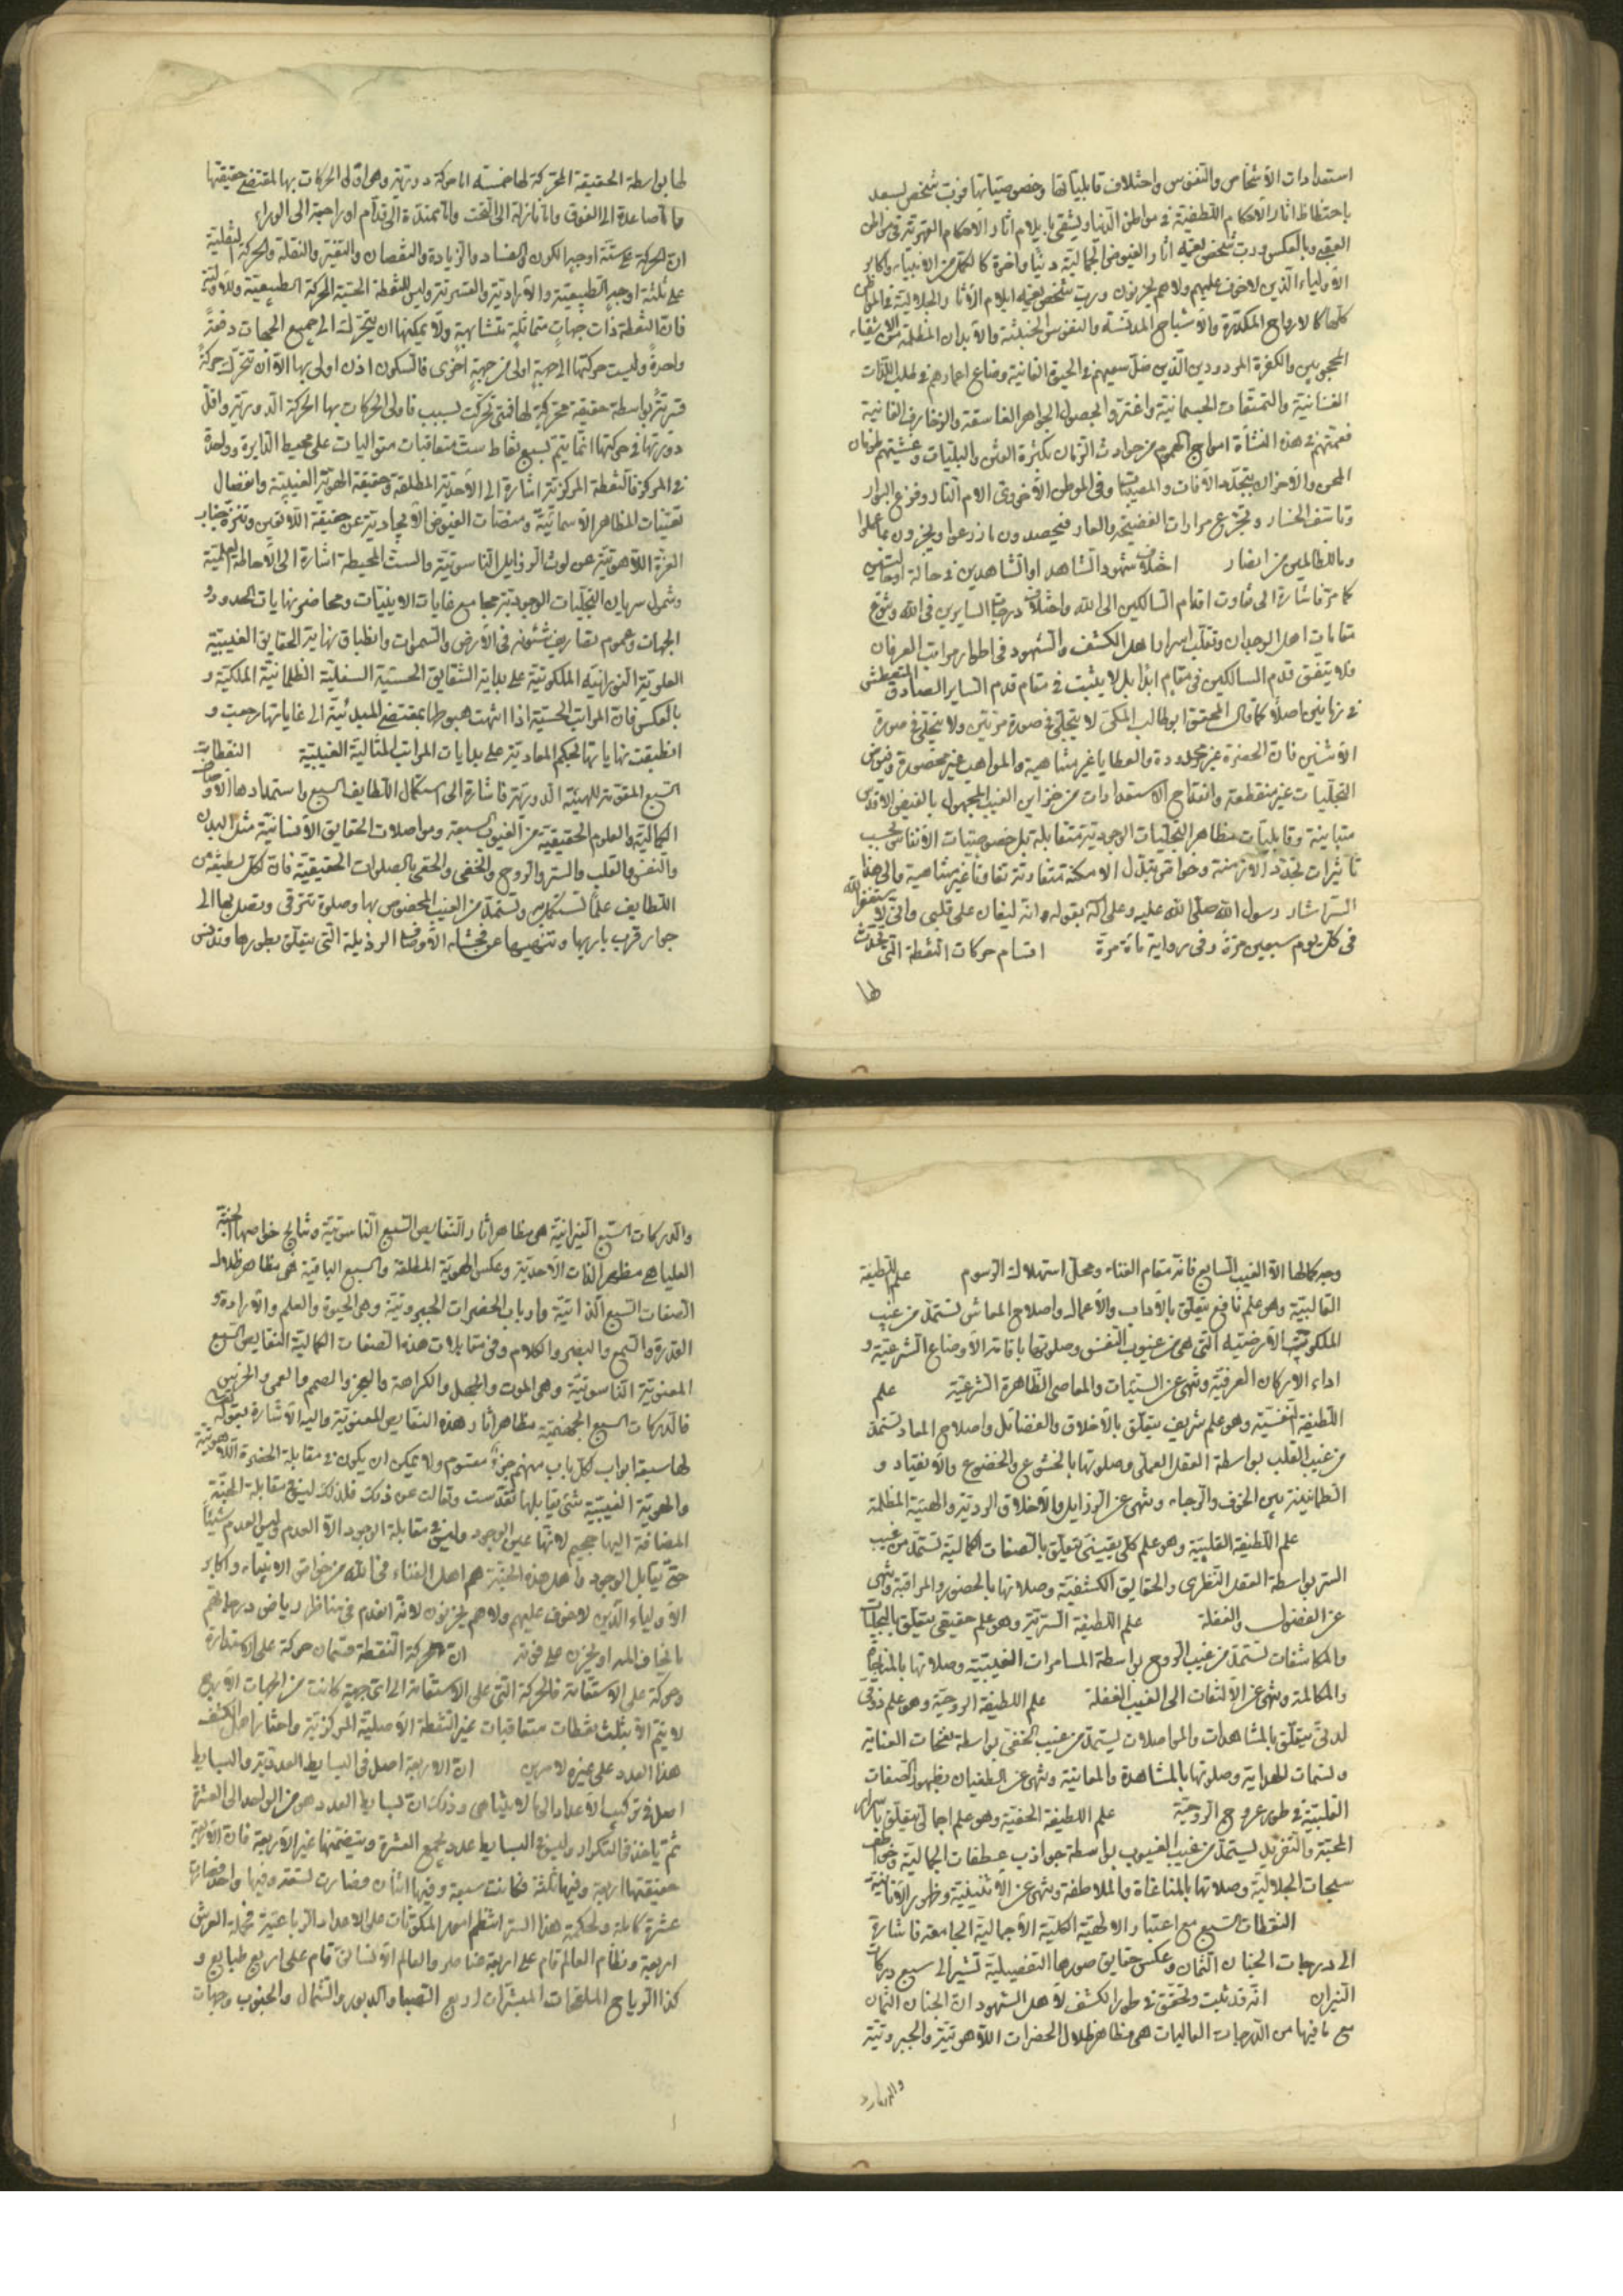 استعدادات الأشخاص والنفوس واختلاف قابلياتها وخصوصياتها فرب شخص يسعد
باحتظاظ اثار الاحكام اللطيفية في مواطن الدنيا ويشقى بايلام اثار الاحكام القهرية في مواطن
العقبى وبالعكس ورب شخص يعمه اثار الفيوض الجمالية دنيا واخرة كالكمل من الانبياء واكابر
الاولياء الذين لا خوف عليهم ولا هم يحزنون ورب شخص يعمه ايلام الآثار الجلالية في المواطن
كلها كالارواح المكدرة والاشباح المدنسة والنفوس الخبيثة والابدان المظلمة من الاشقياء
المحجوبين والكفرة المردودين الذين ضل سعيهم في الحيوة الفانية وضاع اعمارهم في طلب اللذات
النفسانية والتمتعات الجسمانية واغتروا بحصول الجواهر الفاسقة والزخارف الفانية
فعمتهم في هذه النشأة امواج الهموم من حوادث الزمان بكثرة الفتن والبليات وغشيتهم طوفان
المحن والاحزان بتجدد الآفات والمصيبات وفي الموطن الاخروي الام النار وفزع البوار
وتاسف الخسار وتجرع مرارات الفضيحة والعار فيحصدون ما زرعوا ويجزون بما عملوا
وما للظالمين من انصار اختلاف شهود الشاهد او الشاهدين في حالة او حالتين
كما مر فاشارة الى تفاوت اقدام السالكين الى الله واختلاف درجات السايرين في الله وتنوع
مقامات اهل الوجدان وتقلب اسرار اهل الكشف والشهود في اطوار مراتب العرفان
ولا يتفق قدم السالكين في مقام ابدا بل لا يثبت في مقام قدم الساير الصادق المتعطش
في زمانين اصلا كما قال المحقق ابو طالب المكي لا يتجلى في صورة مرتين ولا يتجلى في صورة
الاثنين فان الحضرة غير محدودة والعطايا غير متناهية والمواهب غير محصورة وفيوض
التجليات غير منقطعة وانفتاح الاستعدادات من خزاين الغيب المجهول بالفيض الاقدس
متباينة وقابليات مظاهر التجليات الوجودية متقابلة بل خصوصيات الانفاس بحسب
تاثيرات تجدد الازمنة وخواص تبدل الامكنة متفاوتة تفاوتا غير متناهية والى هذا
السر اشار رسول الله صلى الله عليه وعلى آله بقوله وانه ليغان على قلبي واني لاستغفر الله
في كل يوم سبعين مرة وفي رواية مائة مرة اقسام حركات النقطة التي تحدث
لها
لها بواسطة الحقيقة المحركة لها خمسة اما حركة دورية وهي اولى الحركات بها لمقتضى حقيقتها
واما صاعدة الى الفوق واما نازلة الى التحت واما ممتدة الى قدام او راجعة الى الوراء
ان الحركة على ستة اوجه الكون والفساد والزيادة والنقصان والتغير والنقلة والحركة النقلية
على ثلثة اوجه الطبيعية والارادية والقسرية وليس للنقطة الحسية الحركة الطبيعية والارادية
فان النقطة ذات جهات متماثلة متشابهة ولا يمكنها ان يتحرك الى جميع الجهات دفعة
واحدة وليست حركتها الى جهة اولى من جهة اخرى فالسكون اذن اولى بها الا ان تتحرك حركة
قسرية بواسطة حقيقة محركة لها فمتى تحركت بسبب فاولى الحركات بها الحركة الدورية واقل
دورتها في حركتها انما يتم بسبع نقاط ست متعاقبات متواليات على محيط الدايرة وواحدة
في المركز فالنقطة المركزية اشارة الى الاحدية المطلقة وحقيقة الهوية الغيبية وانفصال
تعينات المظاهر الاسمائية ومنصات الفيوض الايجادية عن حقيقة اللاتعين وتنزه جناب
العزة اللاهوتية عن لوث الرذايل الناسوتية والست المحيطة اشارة الى الاحاطة العلمية
وشمول سريان التجليات الوجودية مجامع غايات الاينيات ومحاضر نهايات الحدود و
الجهات وعموم تصاريف شئونه في الارض والسموات وانطباق نهاية الحقايق الغيبية
العلوية النورانية الملكوتية على بداية الشقايق الحسية السفلية الظلمانية الملكية و
بالعكس فان المراتب الحسية اذا انتهت هبوطها بمقتضى المبدئية الى غاياتها رجعت و
انطبقت نهاياتها بحكم المعادية على بدايات المراتب المثالية الغيبية النقطات
السبع المقومة للهيئة الدورية فاشارة الى استكمال اللطايف السبع واستمدادها الاوصاف
الكمالية والعلوم الحقيقية من الغيوب السبعة ومواصلات الحقايق الانسانية مثل البدن
والنفس والقلب والسر والروح والخفي والحقي بالصلوات الحقيقية فان لكل لطيفة من
اللطايف علما تستكمل به وتستمد من الغيب المخصوص بها وصلوة تترقى وتصل بها الى
جوار قرب باريها وتنهيها عن فحشاء الاوصاف الرذيلة التي يتعلق بطورها وتدنس
وجه كمالها الا الغيب السابع فانه مقام الفناء ومحل استهلاك الرسوم علم اللطيفة
القالبية وهو علم نافع يتعلق بالآداب والاعمال واصلاح المعاش تستمد من غيب
الملكوت الارضية التي هي من غيوب النفس وصلوتها باقامة الاوضاع الشرعية و
اداء الاركان العرفية وتنهى عن السيئات والمعاصي الظاهرة الشرعية علم
اللطيفة النفسية وهو علم شريف يتعلق بالاخلاق والفضائل واصلاح المعاد تستمد
من غيب القلب بواسطة العقل العملي وصلوتها بالخشوع والخضوع والانقياد و
الطمانينة بين الخوف والرجاء وتنهى عن الرذايل والاخلاق الردية والهيئة المظلمة
علم اللطيفة القلبية وهو علم كلي يقيني يتعلق بالصفات الكمالية تستمد من غيب
السر بواسطة العقل النظري والحقايق الكشفية وصلاتها بالحضور والمراقبة وتنهى
عن الفضول والغفلة علم اللطيفة السرية وهو علم حقيقي يتعلق بالتجليات
والمكاشفات تستمد من غيب الروح بواسطة المسامرات الغيبية وصلاتها بالمناجاة
والمكالمة وتنهى عن الالتفات الى الغيب الغفلة علم اللطيفة الروحية وهو علم ذوقي
لدني يتعلق بالمشاهدات والمواصلات يستمد من غيب الخفي بواسطة نفحات العناية
ونسمات الهداية وصلوتها بالمشاهدة والمعاينة وتنهى عن الطغيان بظهور الصفات
القلبية في طور عروج الروحية علم اللطيفة الخفية وهو علم اجمالي يتعلق باسرار
المحبة والتفريد يستمد من غيب الغيوب بواسطة جواذب عطفات الجمالية وخواطف
سبحات الجلالية وصلاتها بالمناغاة والملاطفة وتنهى عن الاثنينية وظهور الانانية
النقطات السبع مع اعتبار الالهية الكلية الاجمالية الجامعة فاشارة
الى درجات الجنان الثمان وعكس حقايق صورها التفصيلية تشير الى سبع دركات
النيران انه قد ثبت وتحقق في طور الكشف لاهل الشهود ان الجنان الثمان
مع ما فيها من الدرجات العاليات هي مظاهر ظلال الحضرات اللاهوتية والجبروتية
والدركات
والدركات السبع النيرانية هي مظاهر اثار النقايص السبع الناسوتية ونتايج خواصها الجنة
العليا هي مظهر الذات الاحدية وعكس الهوية المطلقة والسبع الباقية هي مظاهر ظلال
الصفات السبع الذاتية وارباب الحضرات الجبروتية وهي الحيوة والعلم والارادة و
القدرة والسمع والبصر والكلام وفي مقابلات هذه الصفات الكمالية النقايص السبع
المعنوية الناسوتية وهي الموت والجهل والكراهة والعجز والصمم والعمى والخرس
فالدركات السبع الجهنمية مظاهر اثار هذه النقايص المعنوية واليه الاشارة بقوله تعالى
لها سبعة ابواب لكل باب منهم جزء مقسوم ولا يمكن ان يكون في مقابلة الحضرة اللاهوتية
والهوية الغيبية شئ يقابلها تقدست وتعالت عن ذلك فلذلك ليس في مقابلة الجنة
المضافة اليها جحيم لانها عين الوجود وليس في مقابلة الوجود الا العدم وليس العدم شيئا
حتى يقابل الوجود واهل هذه الجنة هم اهل الفناء في الله من خواص الانبياء واكابر
الاولياء الذين لا خوف عليهم ولا هم يحزنون لانه انعدم في مناظر رياض درجاتهم
ما يخاف المرء او يحزن على فوته ان حركة النقطة قسمان حركة على الاستدارة
وحركة على الاستقامة فالحركة التي على الاستقامة الى اي جهة كانت من الجهات الاربع
لا يتم الا بثلث نقطات متعاقبات غير النقطة الاصلية المركزية واختار اهل الكشف
هذا العدد على غيره لامرين ان الاربعة اصل في البسايط العددية والبسايط
اصل في تركيب الاعداد الى ما لا يتناهى وذلك ان بسايط العدد هو من الواحد الى العشرة
ثم ياخذ في التكرار وليس في البسايط عدد يجمع العشرة ويتضمنها غير الاربعة فان الاربعة
حقيقتها اربعة وفيها ثلثة فكانت سبعة وفيها اثنان فصارت تسعة وفيها واحد فصارت
عشرة كاملة ولحكمة هذا السر انتظم امور المكونات على الاعداد الرباعية فحملة العرش
اربعة ونظام العالم قام على اربعة عناصر والعالم الانساني قام على اربع طبايع و
كذا الرياح الملقحات المبشرات اربع الصبا والدبور والشمال والجنوب وجهات